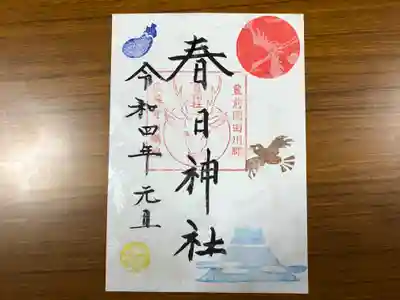 豊前国田川町
春日神社
令和四年 元旦